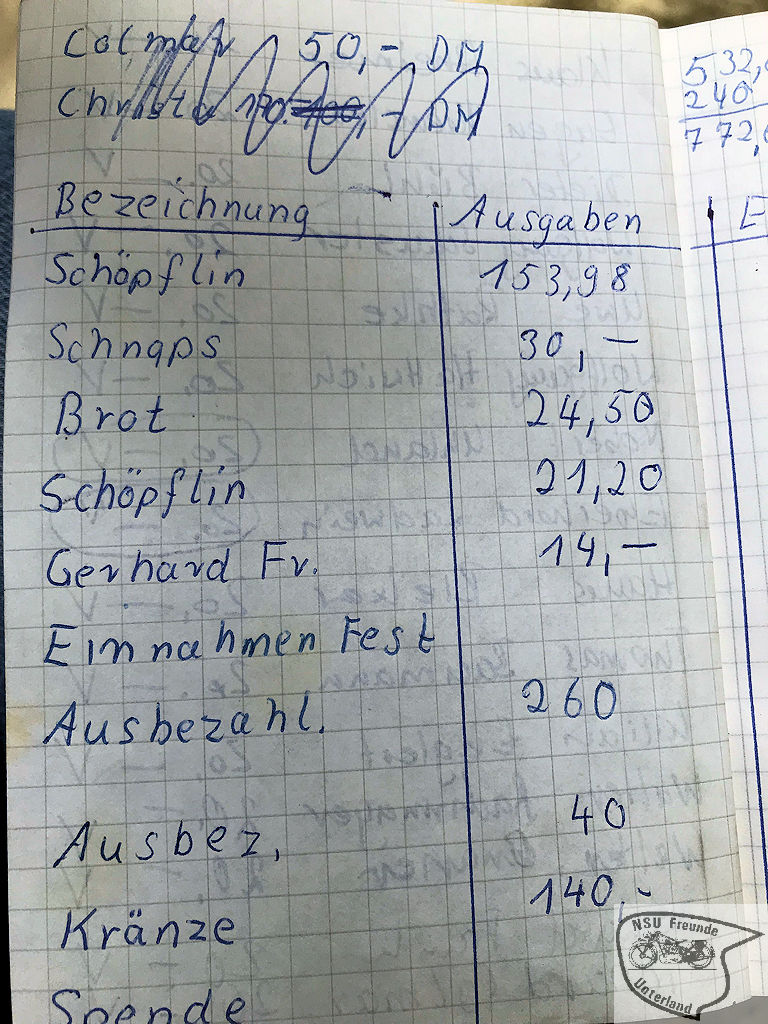 Colmar 50,- DM
Christo 170.- 100,- DM
532,
240
772,
Bezeichnung Ausgaben E
Schöpflin 153,98
Schnaps 30,—
Brot 24,50
Schöpflin 21,20
Gerhard Fr. 14,—
Einnahmen Fest
Ausbezahl. 260
Ausbez, 40
Kränze 140,-
Spende
NSU Freunde
Unterland